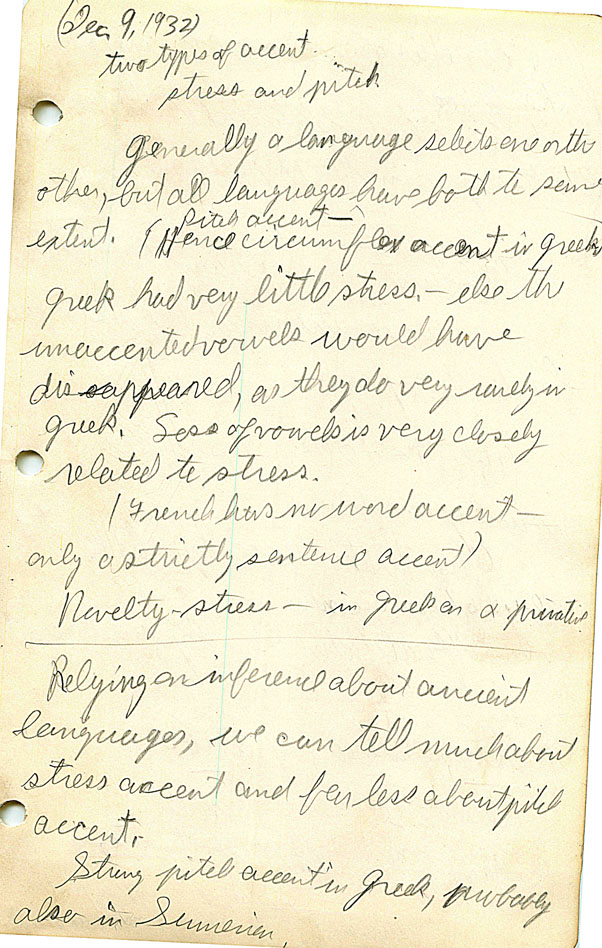 (Dec 9, 1932)
two types of accent
stress and pitch
Generally a language selects one or the
other, but all languages have both to some
extent. (Pitch accent—
Hence circumflex accent in Greek)
Greek had very little stress. — else the
unaccented vowels would have
disappeared, as they do very rarely in
Greek. Loss of vowels is very closely
related to stress.
(French has no word accent —
only a strictly sentence accent)
Novelty-stress — in Greek on α privative
Relying on inference about ancient
languages, we can tell much about
stress accent and far less about pitch
accent.
Strong pitch accent in Greek, probably
also in Sumerian,